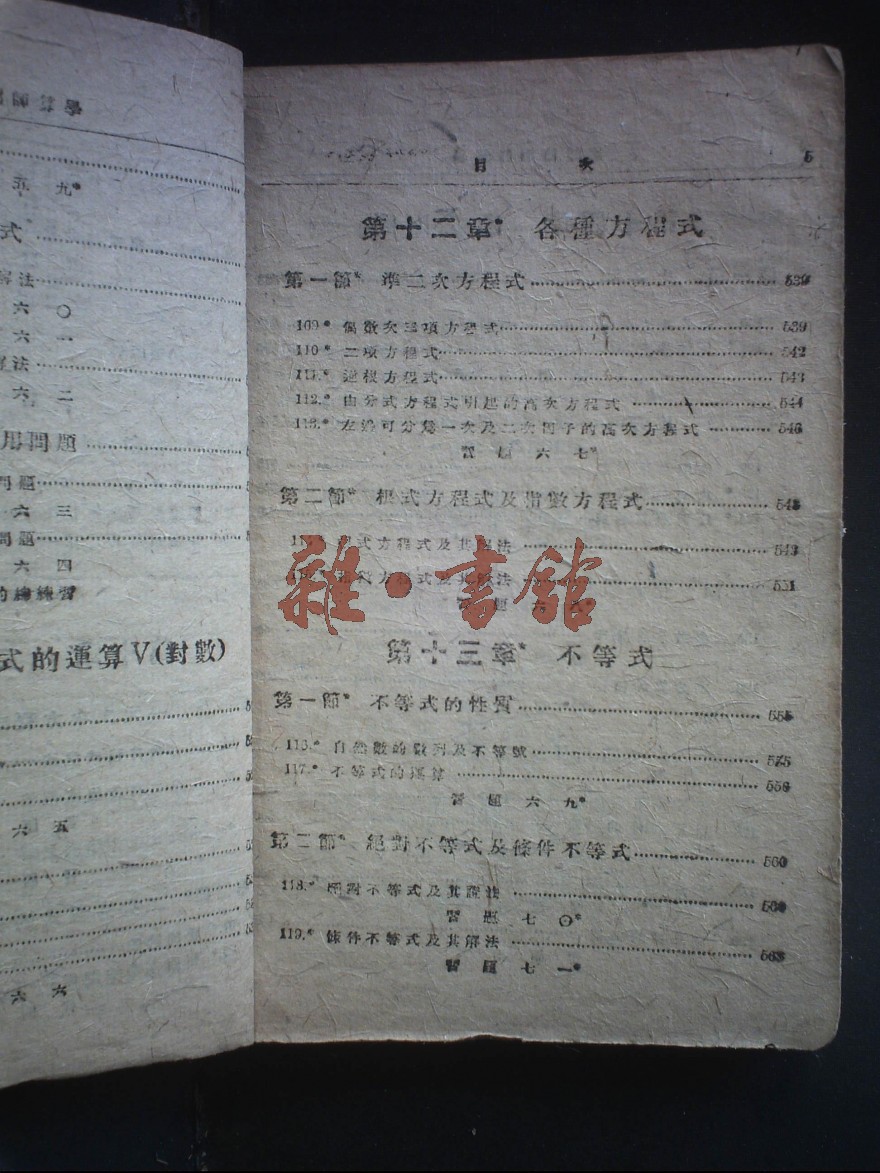 師算學
九*
式
解法
六〇
六一
法
六二
用問題
問題
六三
問題
六四
的總練習
式的運算V(對數)
六五
六六
目次 5
第十二章* 各種方程式
第一節* 準二次方程式 539
109.* 偶數次三項方程式 539
110.* 二項方程式 542
111.* 逆根方程式 543
112.* 由分式方程式引起的高次方程式 544
113.* 左邊可分爲一次及二次因子的高次方程式 546
習題六七*
第二節* 根式方程式及指數方程式 548
式方程式及其解法
方程式及其解法 551
習題六八*
雜·書館
第十三章* 不等式
第一節* 不等式的性質 555
116.* 自然數的數列及不等號 575
117.* 不等式的運算 556
習題六九*
第二節* 絕對不等式及條件不等式 560
118.* 絕對不等式及其證法 560
習題七〇*
119.* 條件不等式及其解法 563
習題七一*